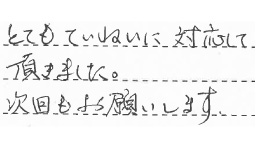 とてもていねいに対応して
頂きました。
次回もお願いします。